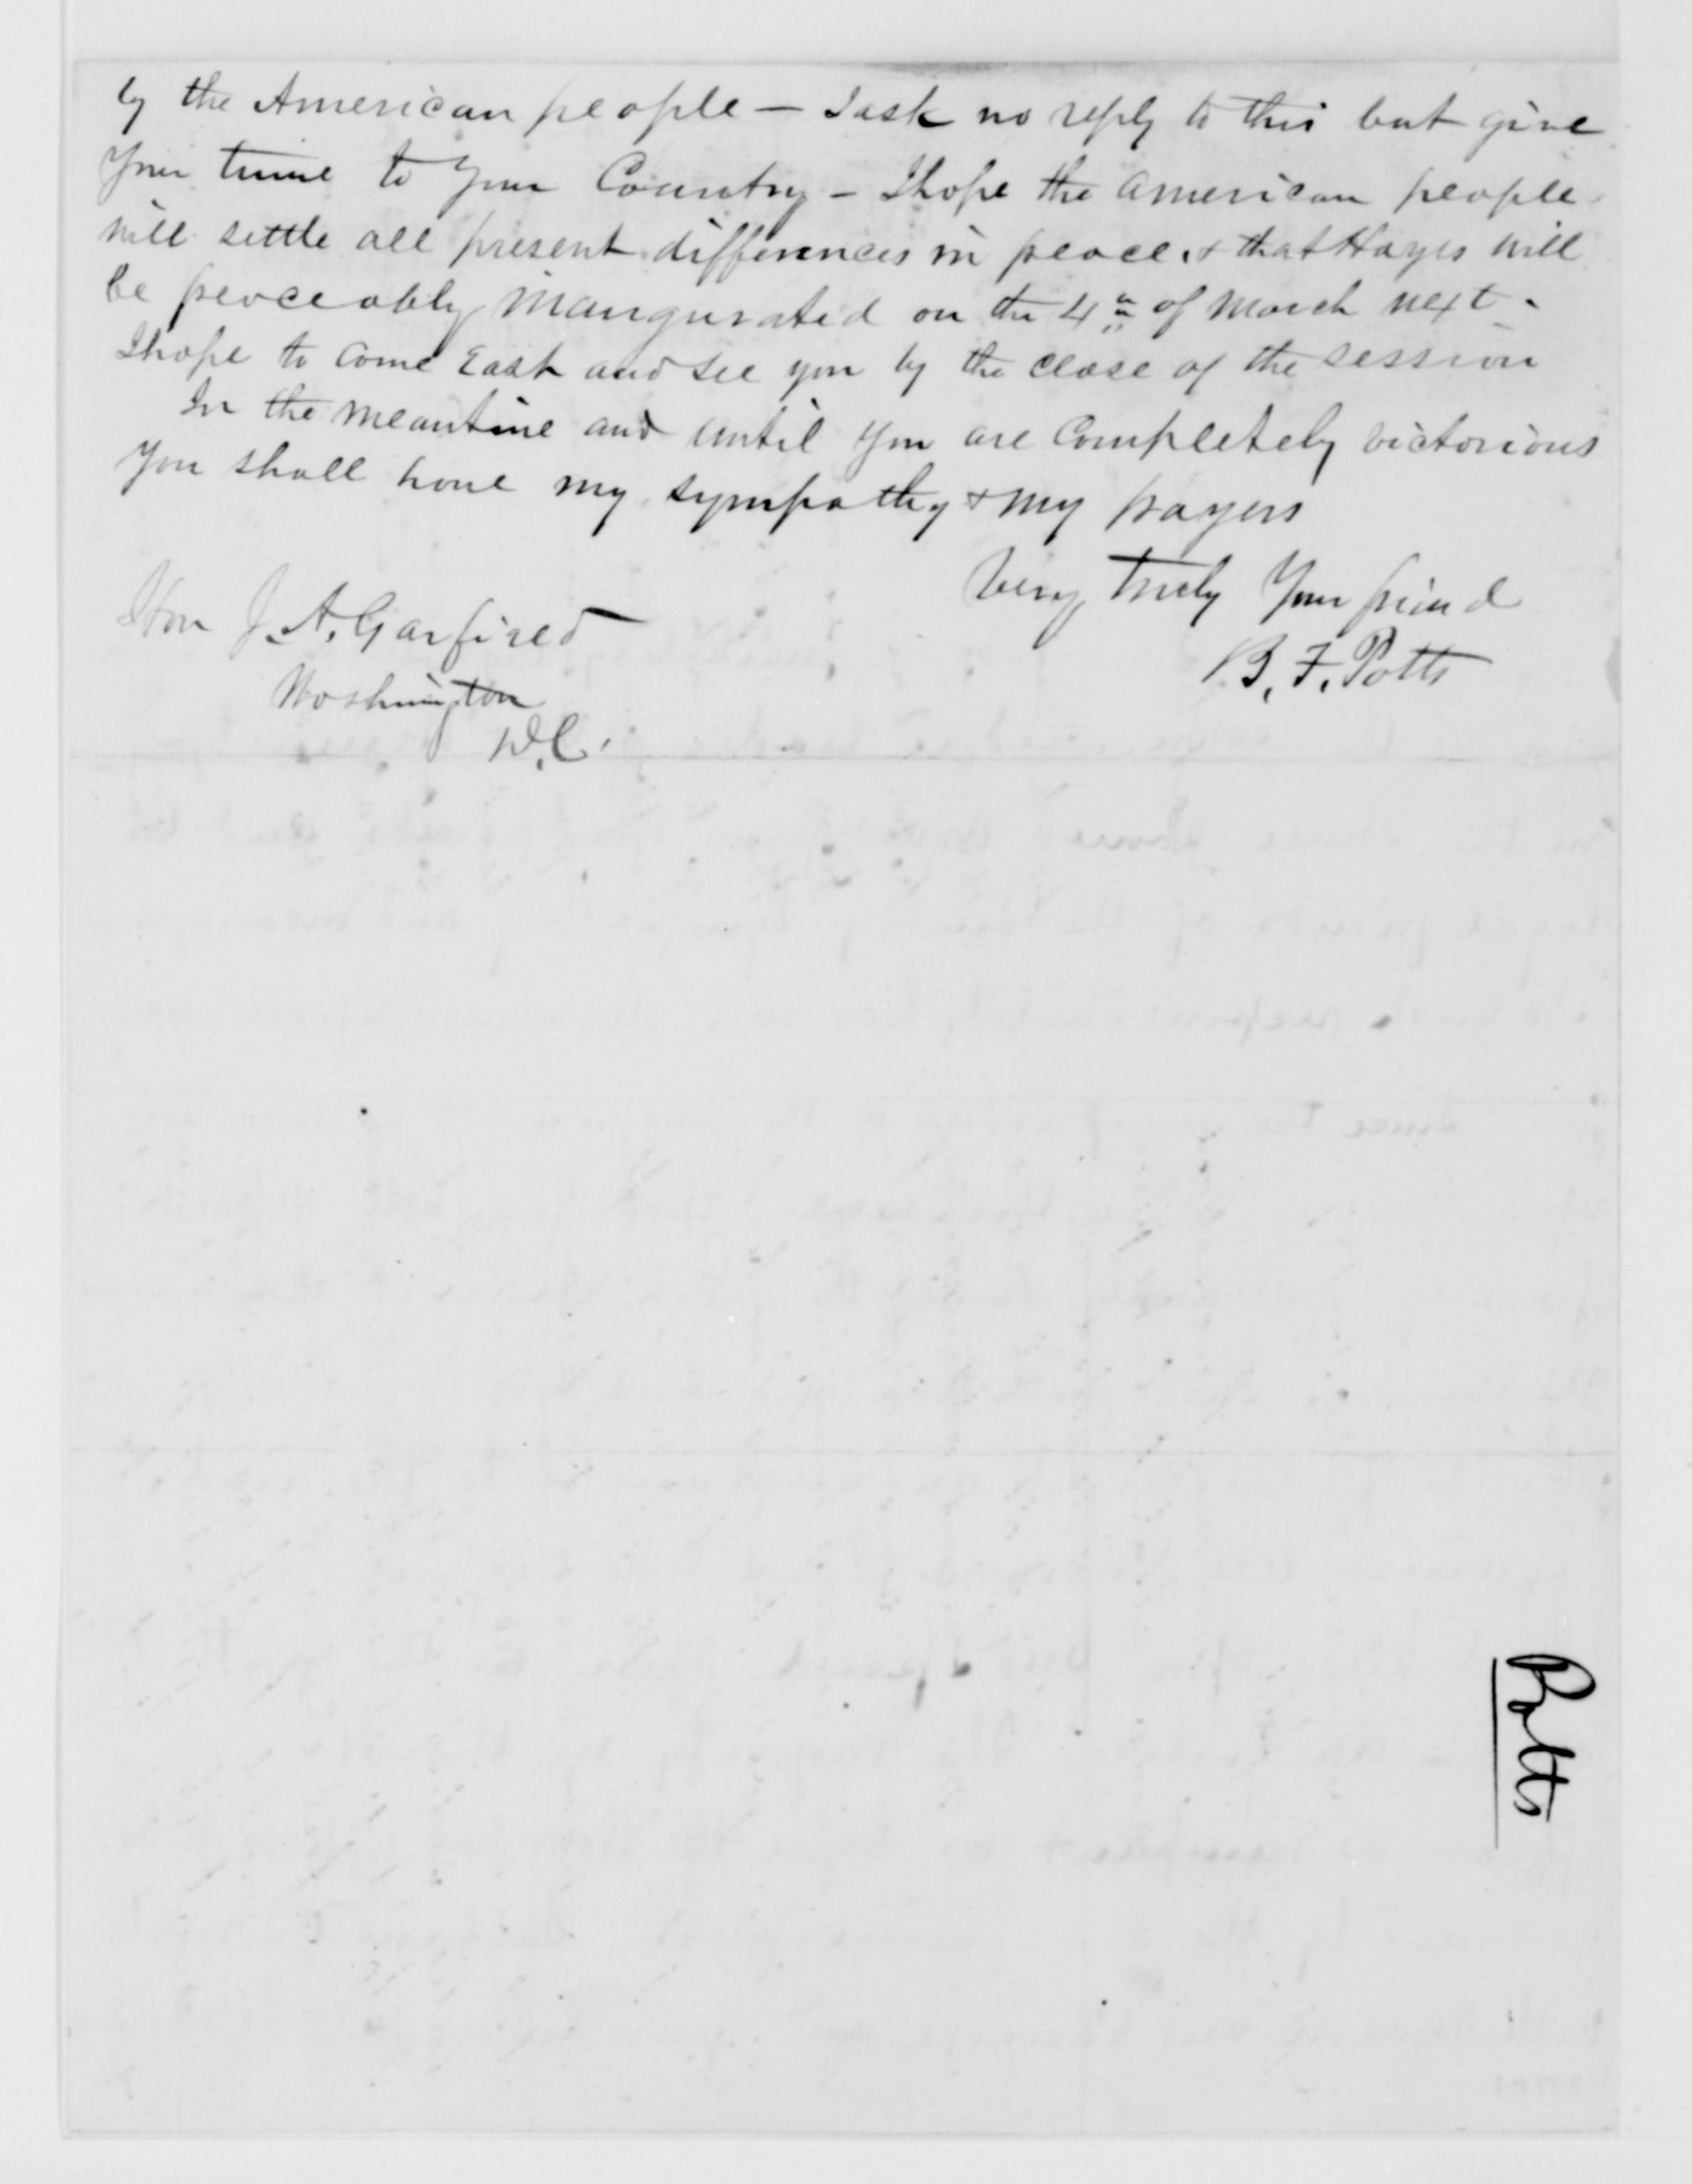 by the American people — I ask no reply to this but give
Your time to Your Country – I hope the American people
will settle all present differences in peace, & that Hayes will
be peaceably inaugurated on the 4th of March next –
I hope to come East and see you by the close of the session
In the meantime and until you are completely victorious
You shall have my sympathy & my prayers
Very truly Your friend
B. F. Potts
Hon J. A. Garfield
Washington
D.C.
Potts